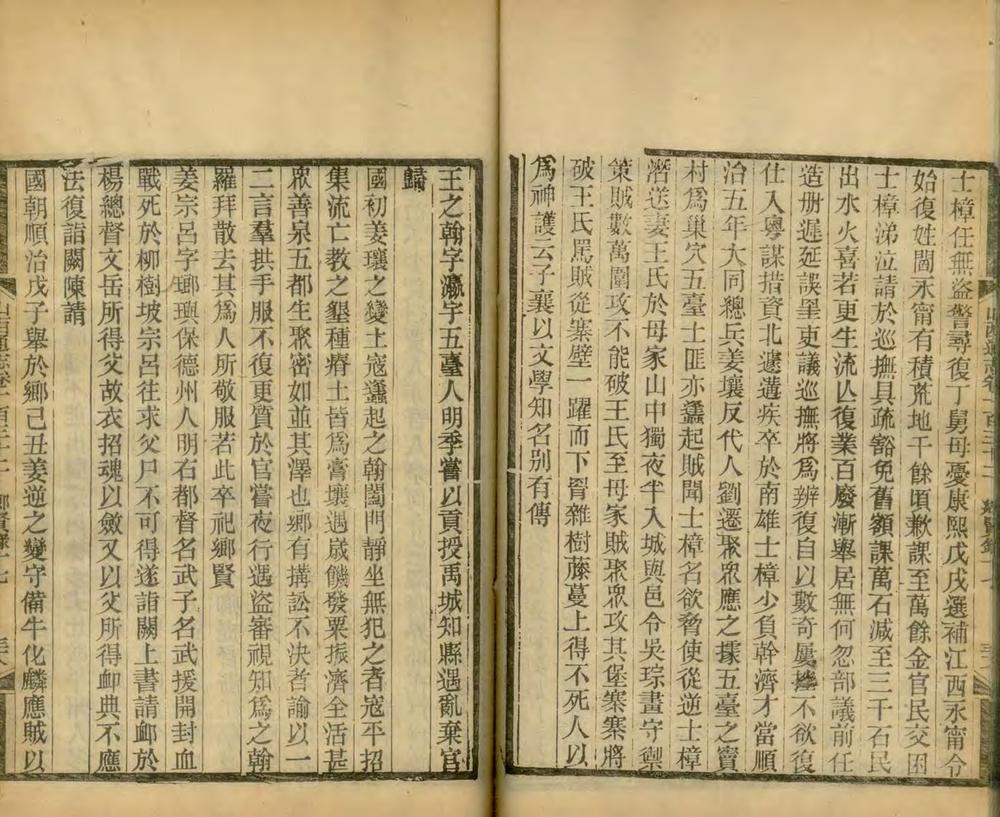 士樟任無盜警尋復丁舅母憂康熙戊戌選補江西永甯令
始復姓閻永甯有積荒地千餘頃歉課至萬餘金官民交困
士樟涕泣請於巡撫具疏豁免舊額課萬石減至三千石民
出水火喜若更生流亾復業百廢漸舉居無何忽部議前任
造册遲延誤罣吏議巡撫將爲辨復自以數奇屢挫不欲復
仕入粵謀措資北遽遘疾卒於南雄士樟少負幹濟才當順
治五年大同總兵姜壤反代人劉遷聚眾應之據五臺之竇
村爲巢穴五臺土匪亦蠭起賊聞士樟名欲脅使從逆士樟
濳送妻王氏於母家山中獨夜半入城與邑令吳琮畫守禦
策賊數萬圍攻不能破王氏至母家賊聚眾攻其堡寨寨將
破王氏罵賊從寨壁一躍而下罥雜樹藤蔓上得不死人以
爲神護云子襄以文學知名别有傳
王之翰字瀛宇五臺人明季嘗以貢授禹城知縣遇亂棄官
歸
國初姜瓖之變土寇蠭起之翰闔門靜坐無犯之者寇平招
集流亡教之墾種瘠土皆爲膏壤遇歳饑發粟振濟全活甚
眾善泉五都生聚密如並其澤也鄉有搆訟不決者諭以一
二言羣拱手服不復更質於官嘗夜行遇盜審視知爲之翰
羅拜散去其爲人所敬服若此卒祀鄉賢
姜宗呂字瑯璵保德州人明右都督名武子名武援開封血
戰死於柳樹坡宗呂往求父尸不可得遂詣闕上書請卹於
楊總督文岳所得父故衣招魂以斂又以父所得卹典不應
法復詣闕陳請
國朝順治戊子舉於鄉己丑姜逆之變守備牛化麟應賊以